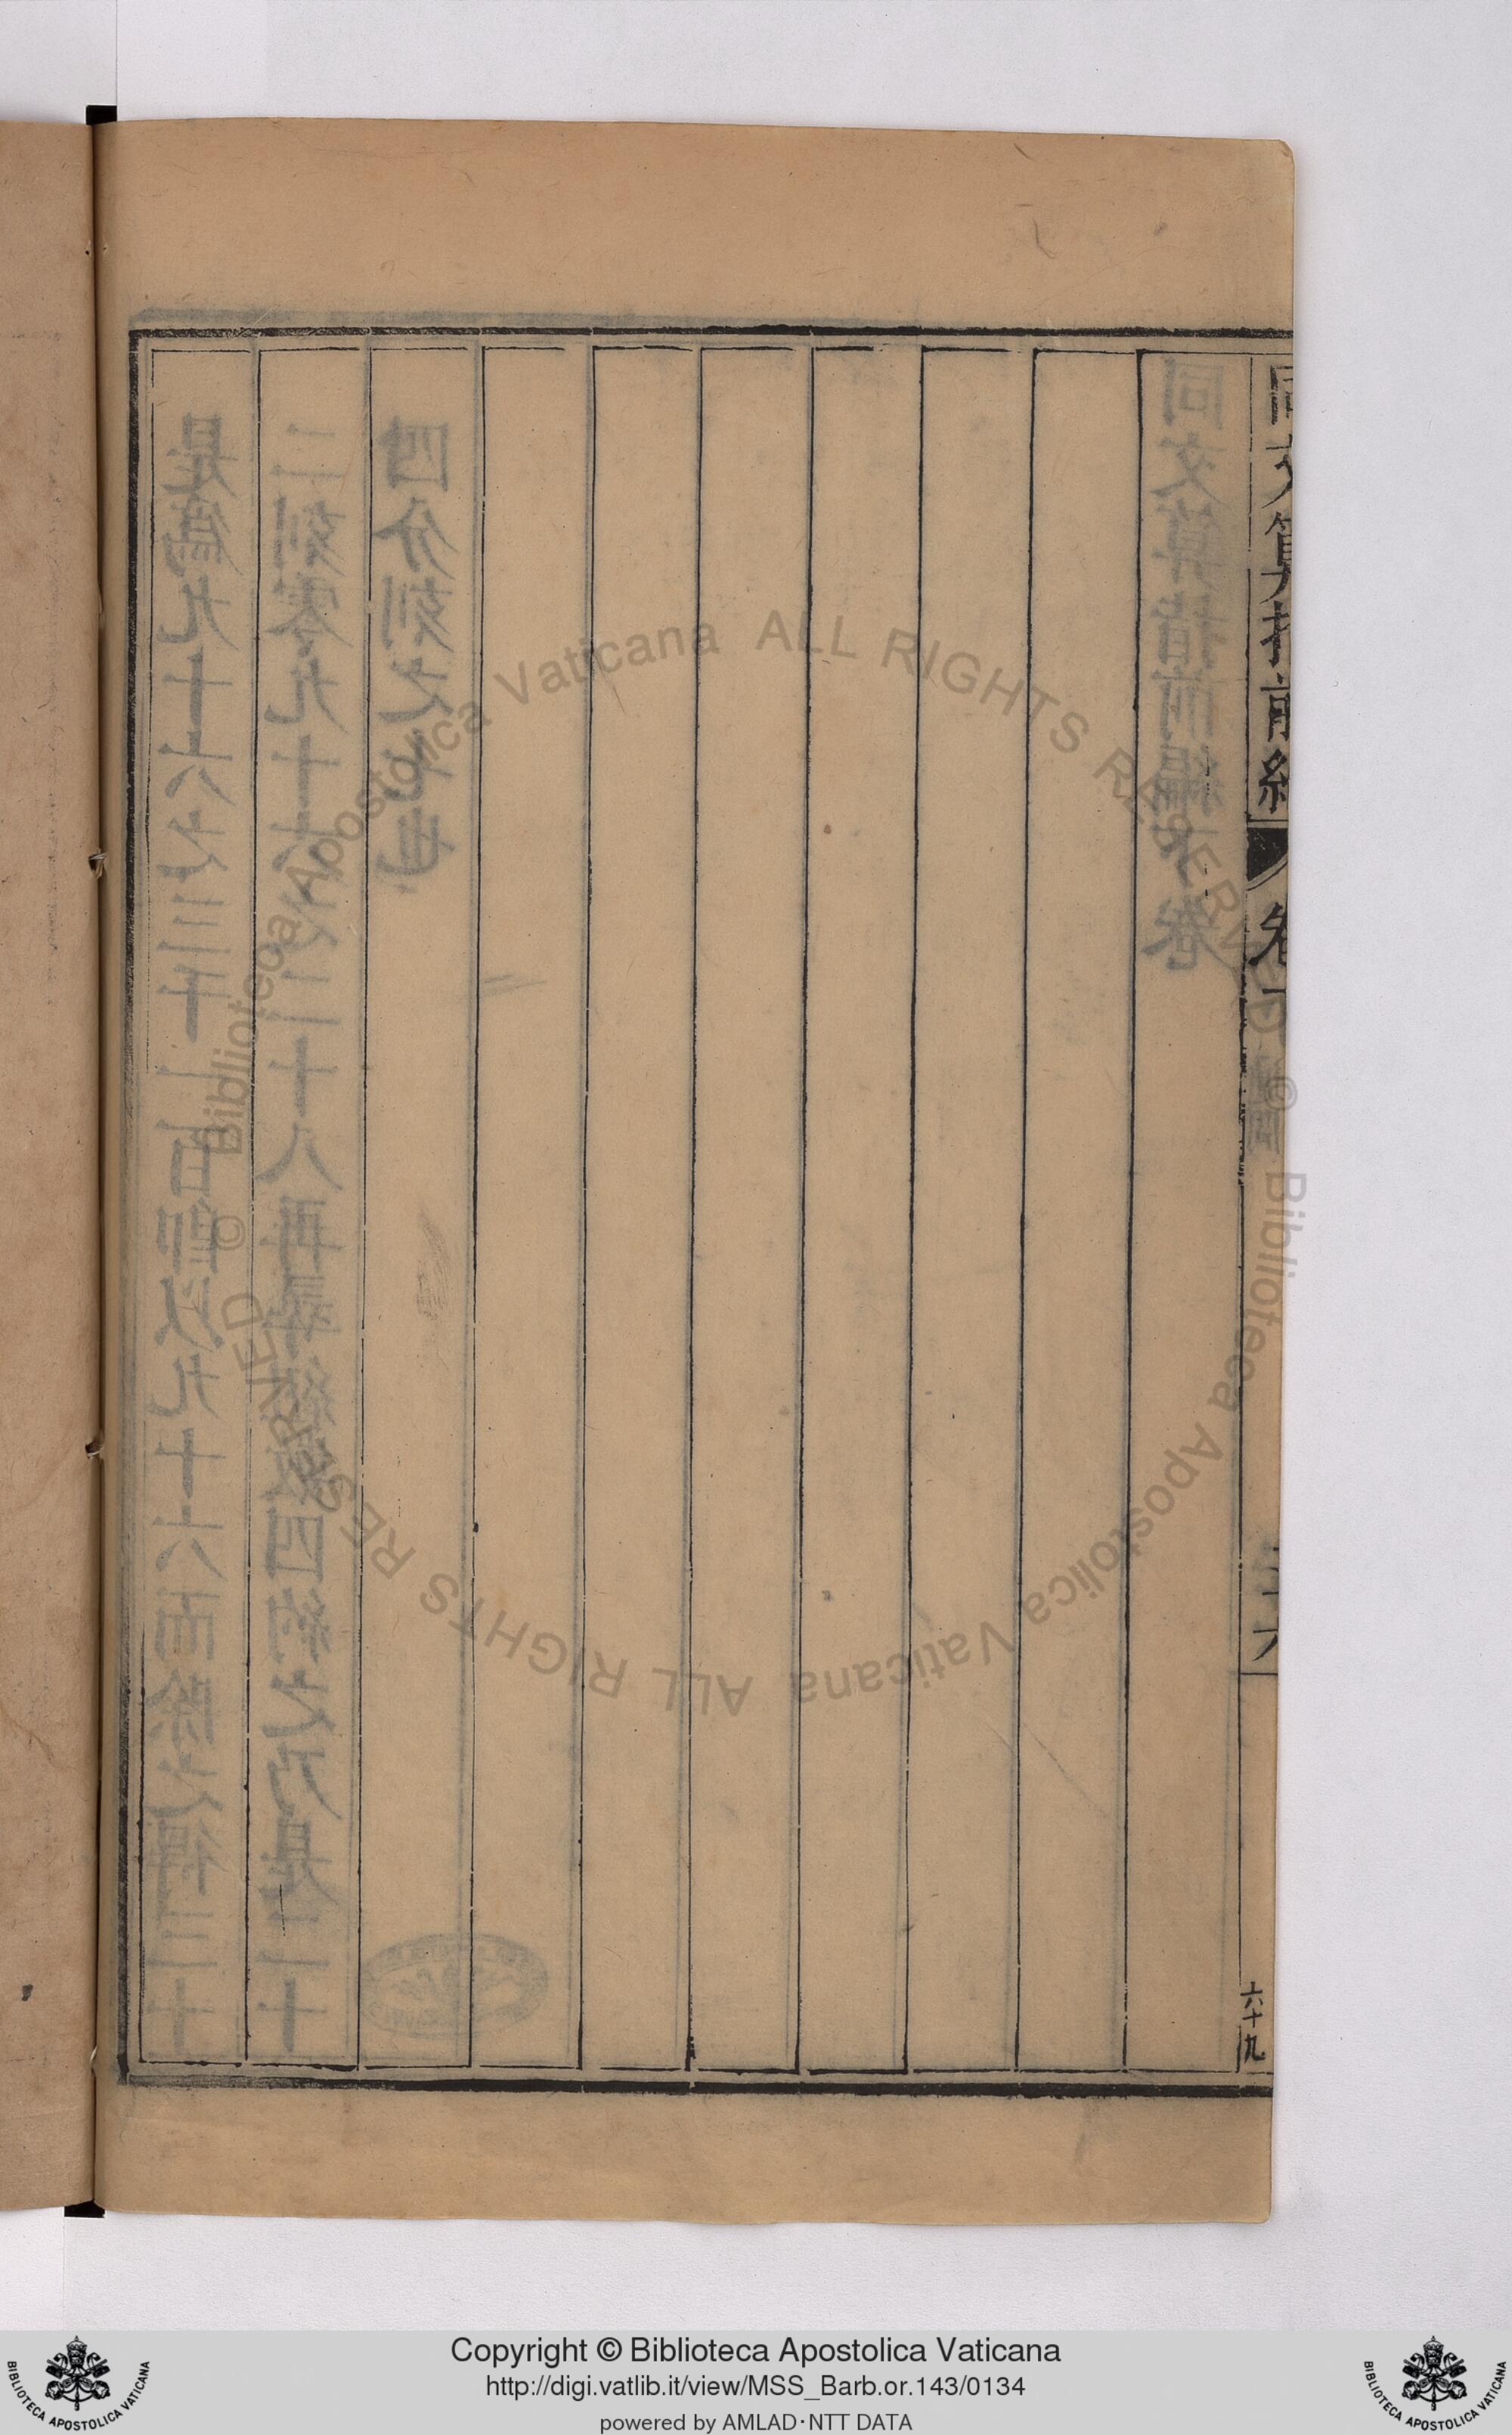 同文算指前編
卷下
六十九
同文算指前編下卷
是爲九十六之三千一百卽以九十六而除之得三十
二刻零九十六之二十八再尋紐數四約之乃是二十
四分刻之七也
© Biblioteca Apostolica Vaticana ALL RIGHTS RESERVED
© Biblioteca Apostolica Vaticana ALL RIGHTS RESERVED
Copyright © Biblioteca Apostolica Vaticana
http://digi.vatlib.it/view/MSS_Barb.or.143/0134
powered by AMLAD·NTT DATA
BIBLIOTECA APOSTOLICA VATICANA
BIBLIOTECA APOSTOLICA VATICANA